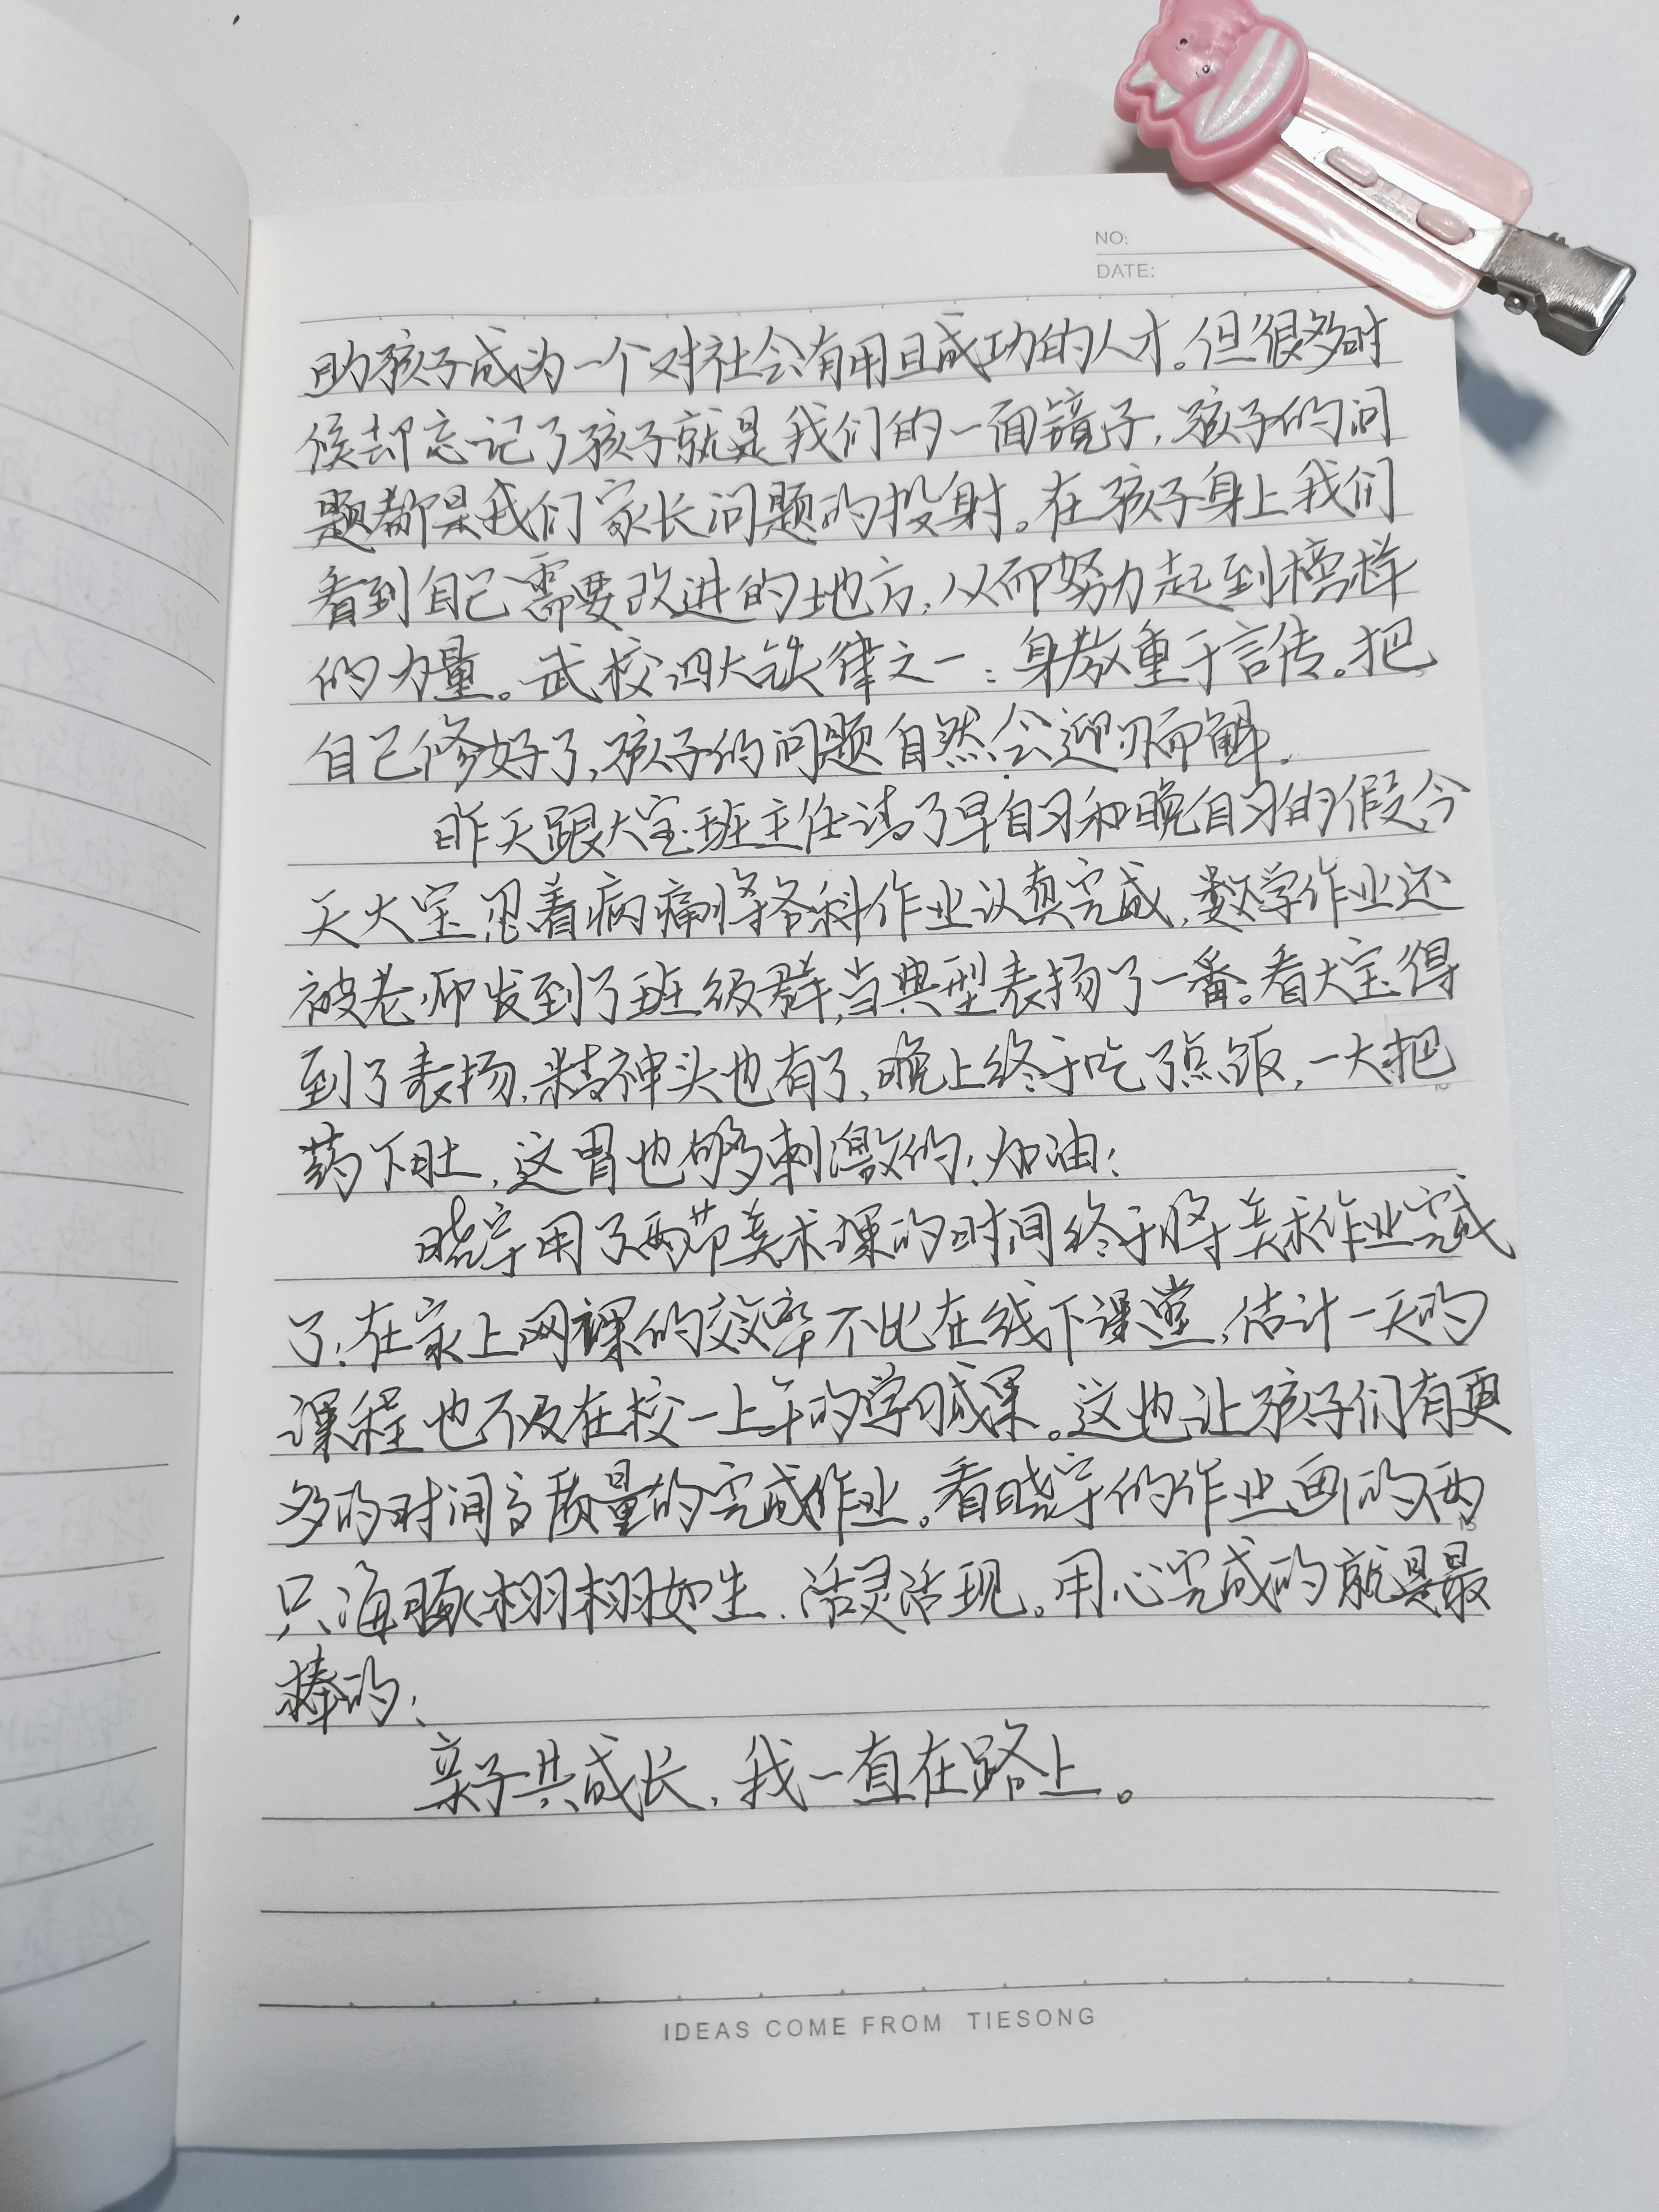 NO:
DATE:
的孩子成为一个对社会有用且成功的人才。但很多时
候却忘记了孩子就是我们的一面镜子,孩子的问
题都是我们家长问题的投射。在孩子身上我们
看到自己需要改进的地方,从而努力起到榜样
的力量。武校四大铁律之一:身教重于言传。把
自己修好了,孩子的问题自然会迎刃而解。
昨天跟大宝班主任请了早自习和晚自习的假,今
天大宝忍着病痛将各科作业认真完成,数学作业还
被老师发到了班级群,当典型表扬了一番。看大宝得
到了表扬,精神头也有了,晚上终于吃了点饭,一大把
药下肚,这胃也够刺激的!加油!
晓宇用了两节美术课的时间终于将美术作业完成
了!在家上网课的效率不比在线下课堂,估计一天的
课程也不及在校一上午的学习成果。这也让孩子们有更
多的时间高质量的完成作业。看晓宇的作业画的两
只海豚栩栩如生,活灵活现。用心完成的就是最
棒的!
亲子共成长,我一直在路上。
IDEAS COME FROM TIESONG